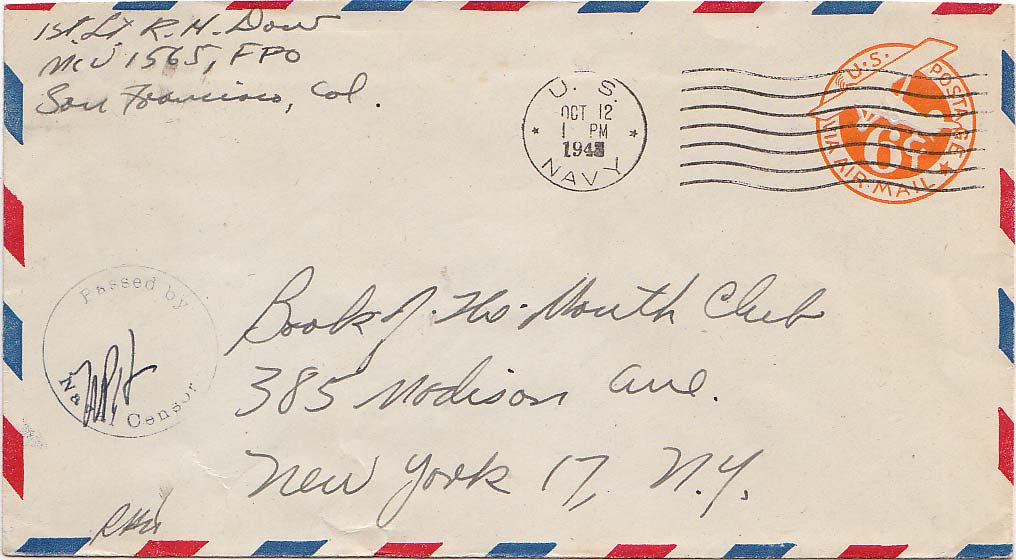 1st. Lt R. H. Dow
NCJ 1565, FPO
San Francisco, Cal.
U. S.
OCT 12
1 PM
194
NAVY
U.S. POSTAGE
6¢
VIA AIR MAIL
Passed by
Naval Censor
Book of The Month Club
385 Madison Ave.
New York 17, N.Y.